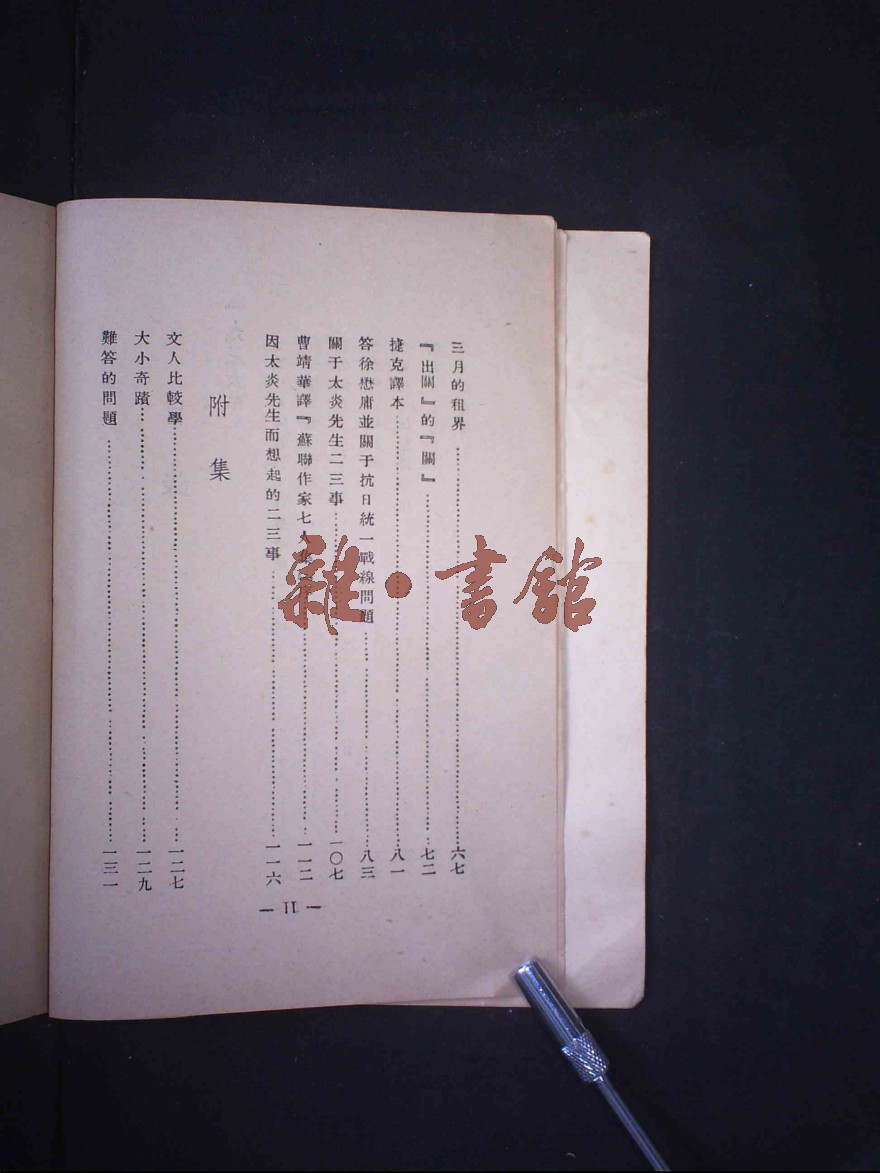 三月的租界 六七
『出關』的『關』 七二
捷克譯本 八一
答徐懋庸並關于抗日統一戰線問題 八三
關于太炎先生二三事 一〇七
曹靖華譯『蘇聯作家七人集 一一二
因太炎先生而想起的二三事 一一六
附集
文人比較學 一二七
大小奇蹟 一二九
難答的問題 一三一
— II —
雜·書館